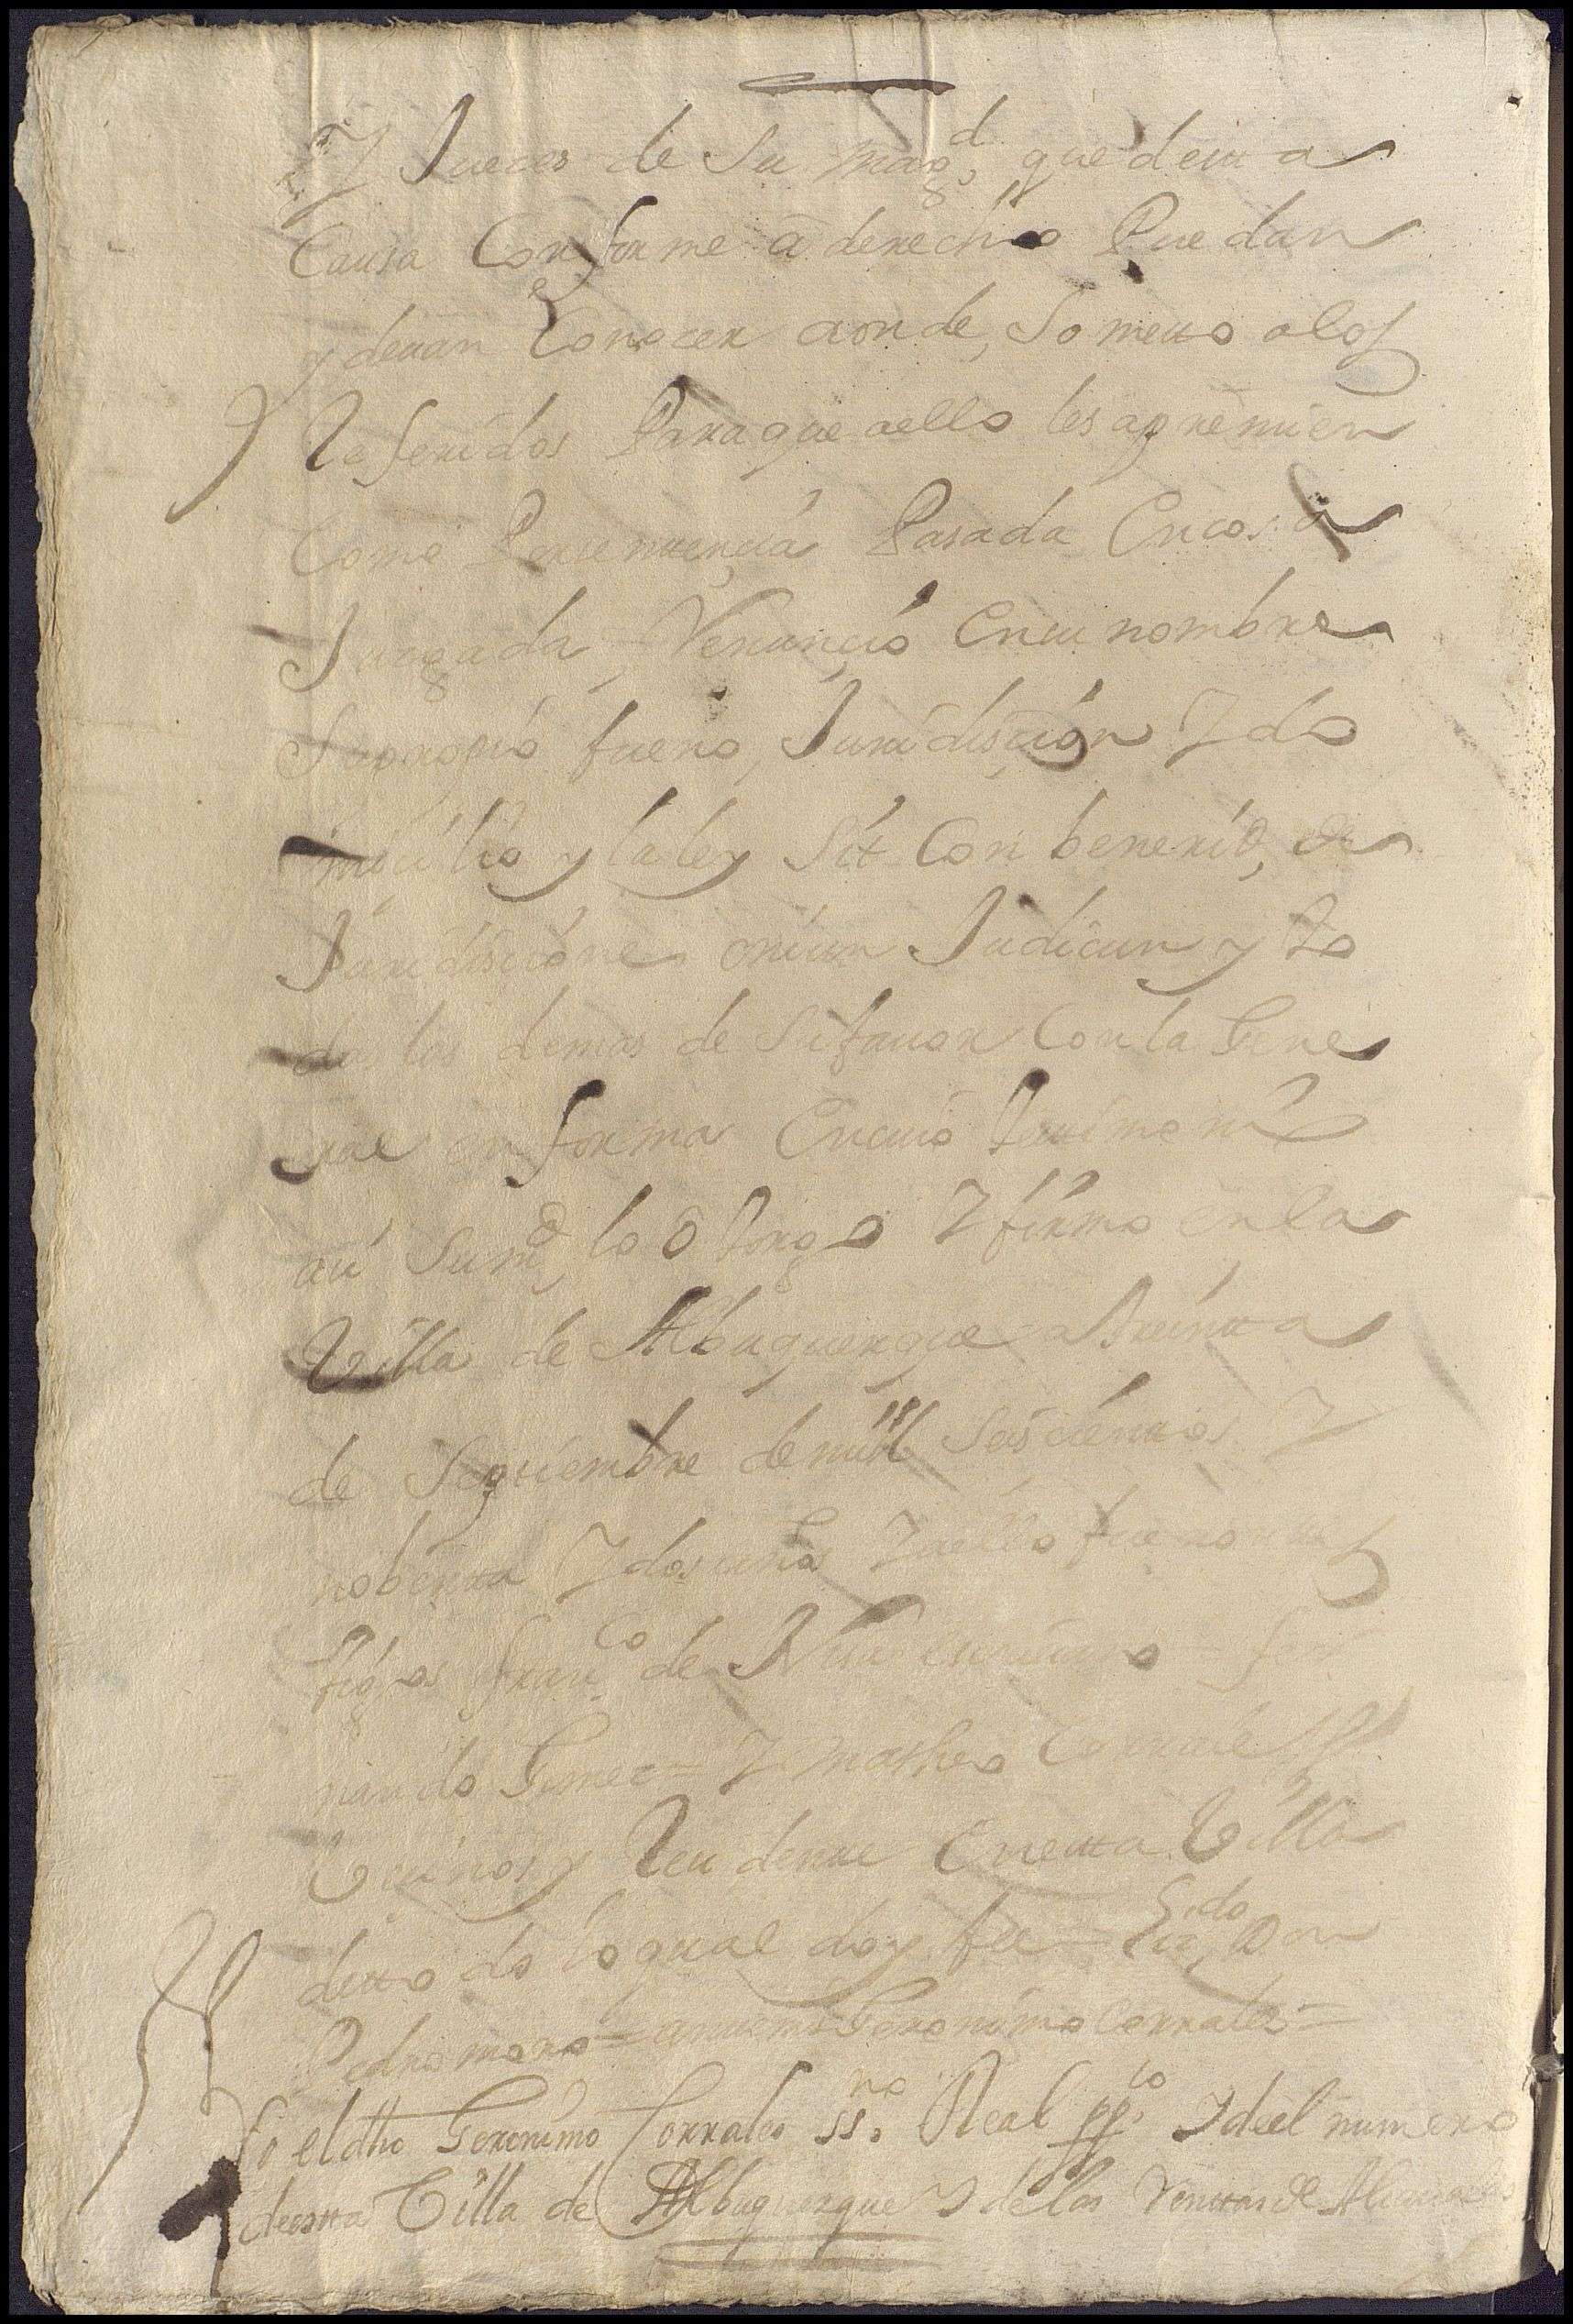 Y Jueces de Su Magd, que desta
Causa Conforme a derecho Puedan
y devan Conocer adonde, Someto a los
Referidos Para que a ello les apremien
Como Por sentencia Pasada En cosa
Juzgada, Renuncio En su nombre
Su propio fuero, Jurisdiscion Y do
micilio y la ley Sit Conbenerid, de
Jurisdiscione oniun Judicun y to
das las demas de Su favor Con la Gene
ral en forma En cuio testimonio
asi Sumd lo otorgo Y firmo en la
Villa de Alburquerque a treinta
de Septiembre de mill Seiscientos Y
nobenta Y dos años Y a ello fueron tes
tigos Franco de = Fer
nando Gomez = Y Matheo Corrales
Vecinos y Residente En esta Villa
de todo lo qual doy fee = Lizdo Don
Pedro moro = ante mi Geronimo Corrales =
Yo el dho Geronimo Corrales ssno Real ppco Y del numero
desta Villa de Alburquerque Y de las Rentas de